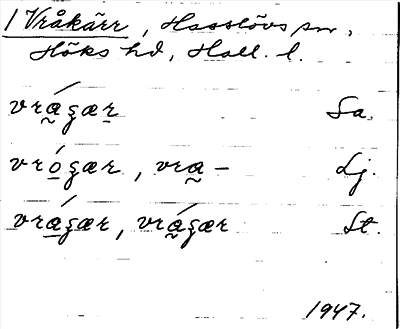 / Vråkärr, Hasslövs sn,
Höks hd, Hall. l.
vrá̰gær̲ Sa.
vró̲gær, vra̰- Lj.
vrá̲gær, vrá̰gær St.
1947.